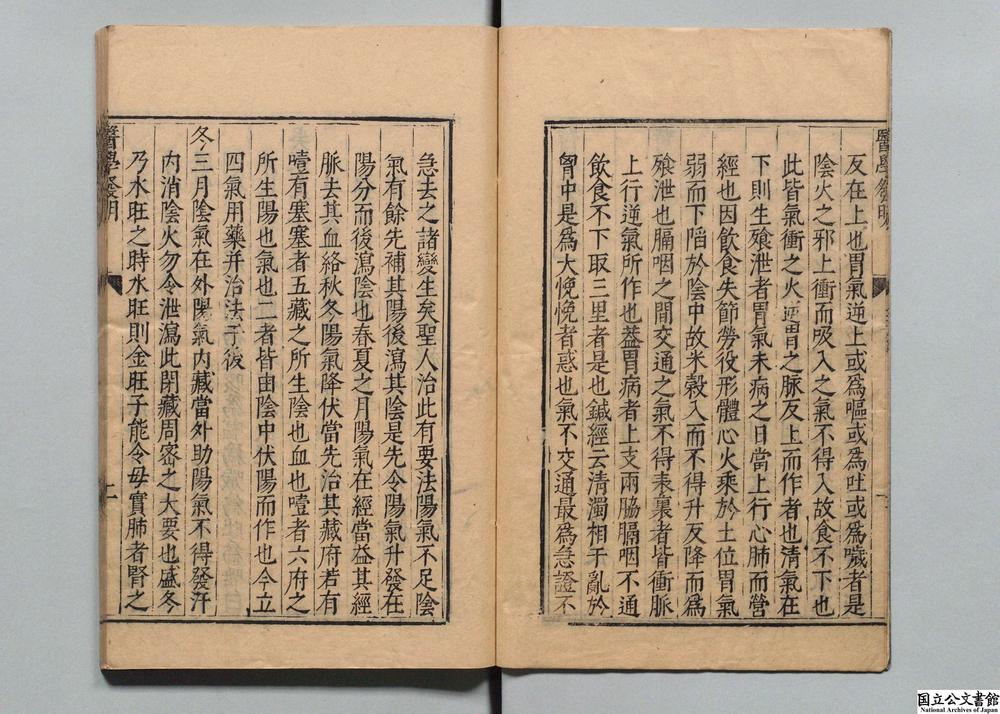 反在上也胃氣逆上或爲嘔或爲吐或爲噦者是
陰火之邪上衝而吸入之氣不得入故食不下也
此皆氣衝之火逆胃之脉反上而作者也清氣在
下則生飱泄者胃氣未病之日當上行心肺而營
經也因飲食失節勞役形體心火乘於土位胃氣
弱而下陷於陰中故米穀入而不得升反降而爲
飱泄也膈咽之間交通之氣不得表裏者皆衝脈
上行逆氣所作也葢胃病者上支兩脇膈咽不通
飲食不下取三里者是也鍼經云清濁相干亂於
胷中是爲大悗悗者惑也氣不交通最爲急證不
急去之諸變生矣聖人治此有要法陽氣不足陰
氣有餘先補其陽後瀉其陰是先令陽氣升發在
陽分而後瀉陰也春夏之月陽氣在經當益其經
脈去其血絡秋冬陽氣降伏當先治其藏府若有
噎有塞塞者五藏之所生陰也血也噎者六府之
所生陽也氣也二者皆由陰中伏陽而作也今立
四氣用藥并治法于後
冬三月陰氣在外陽氣內藏當外助陽氣不得發汗
內消陰火勿令泄瀉此閉藏周密之大要也盛冬
乃水旺之時水旺則金旺子能令母實肺者腎之
醫學發明
二
国立公文書館
National Archives of Japan